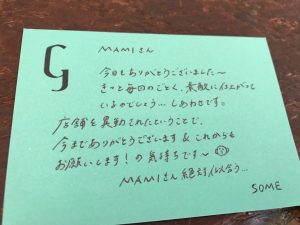 G
MAMIさん
今日もありがとうございました〜
きっと毎回のごとく、素敵に仕上がって
いるのでしょう…しあわせです。
店舗を異動されたということで、
今までありがとうございます&これからも
お願いします！の気持ちです〜
MAMIさん絶対似合う…
SOME